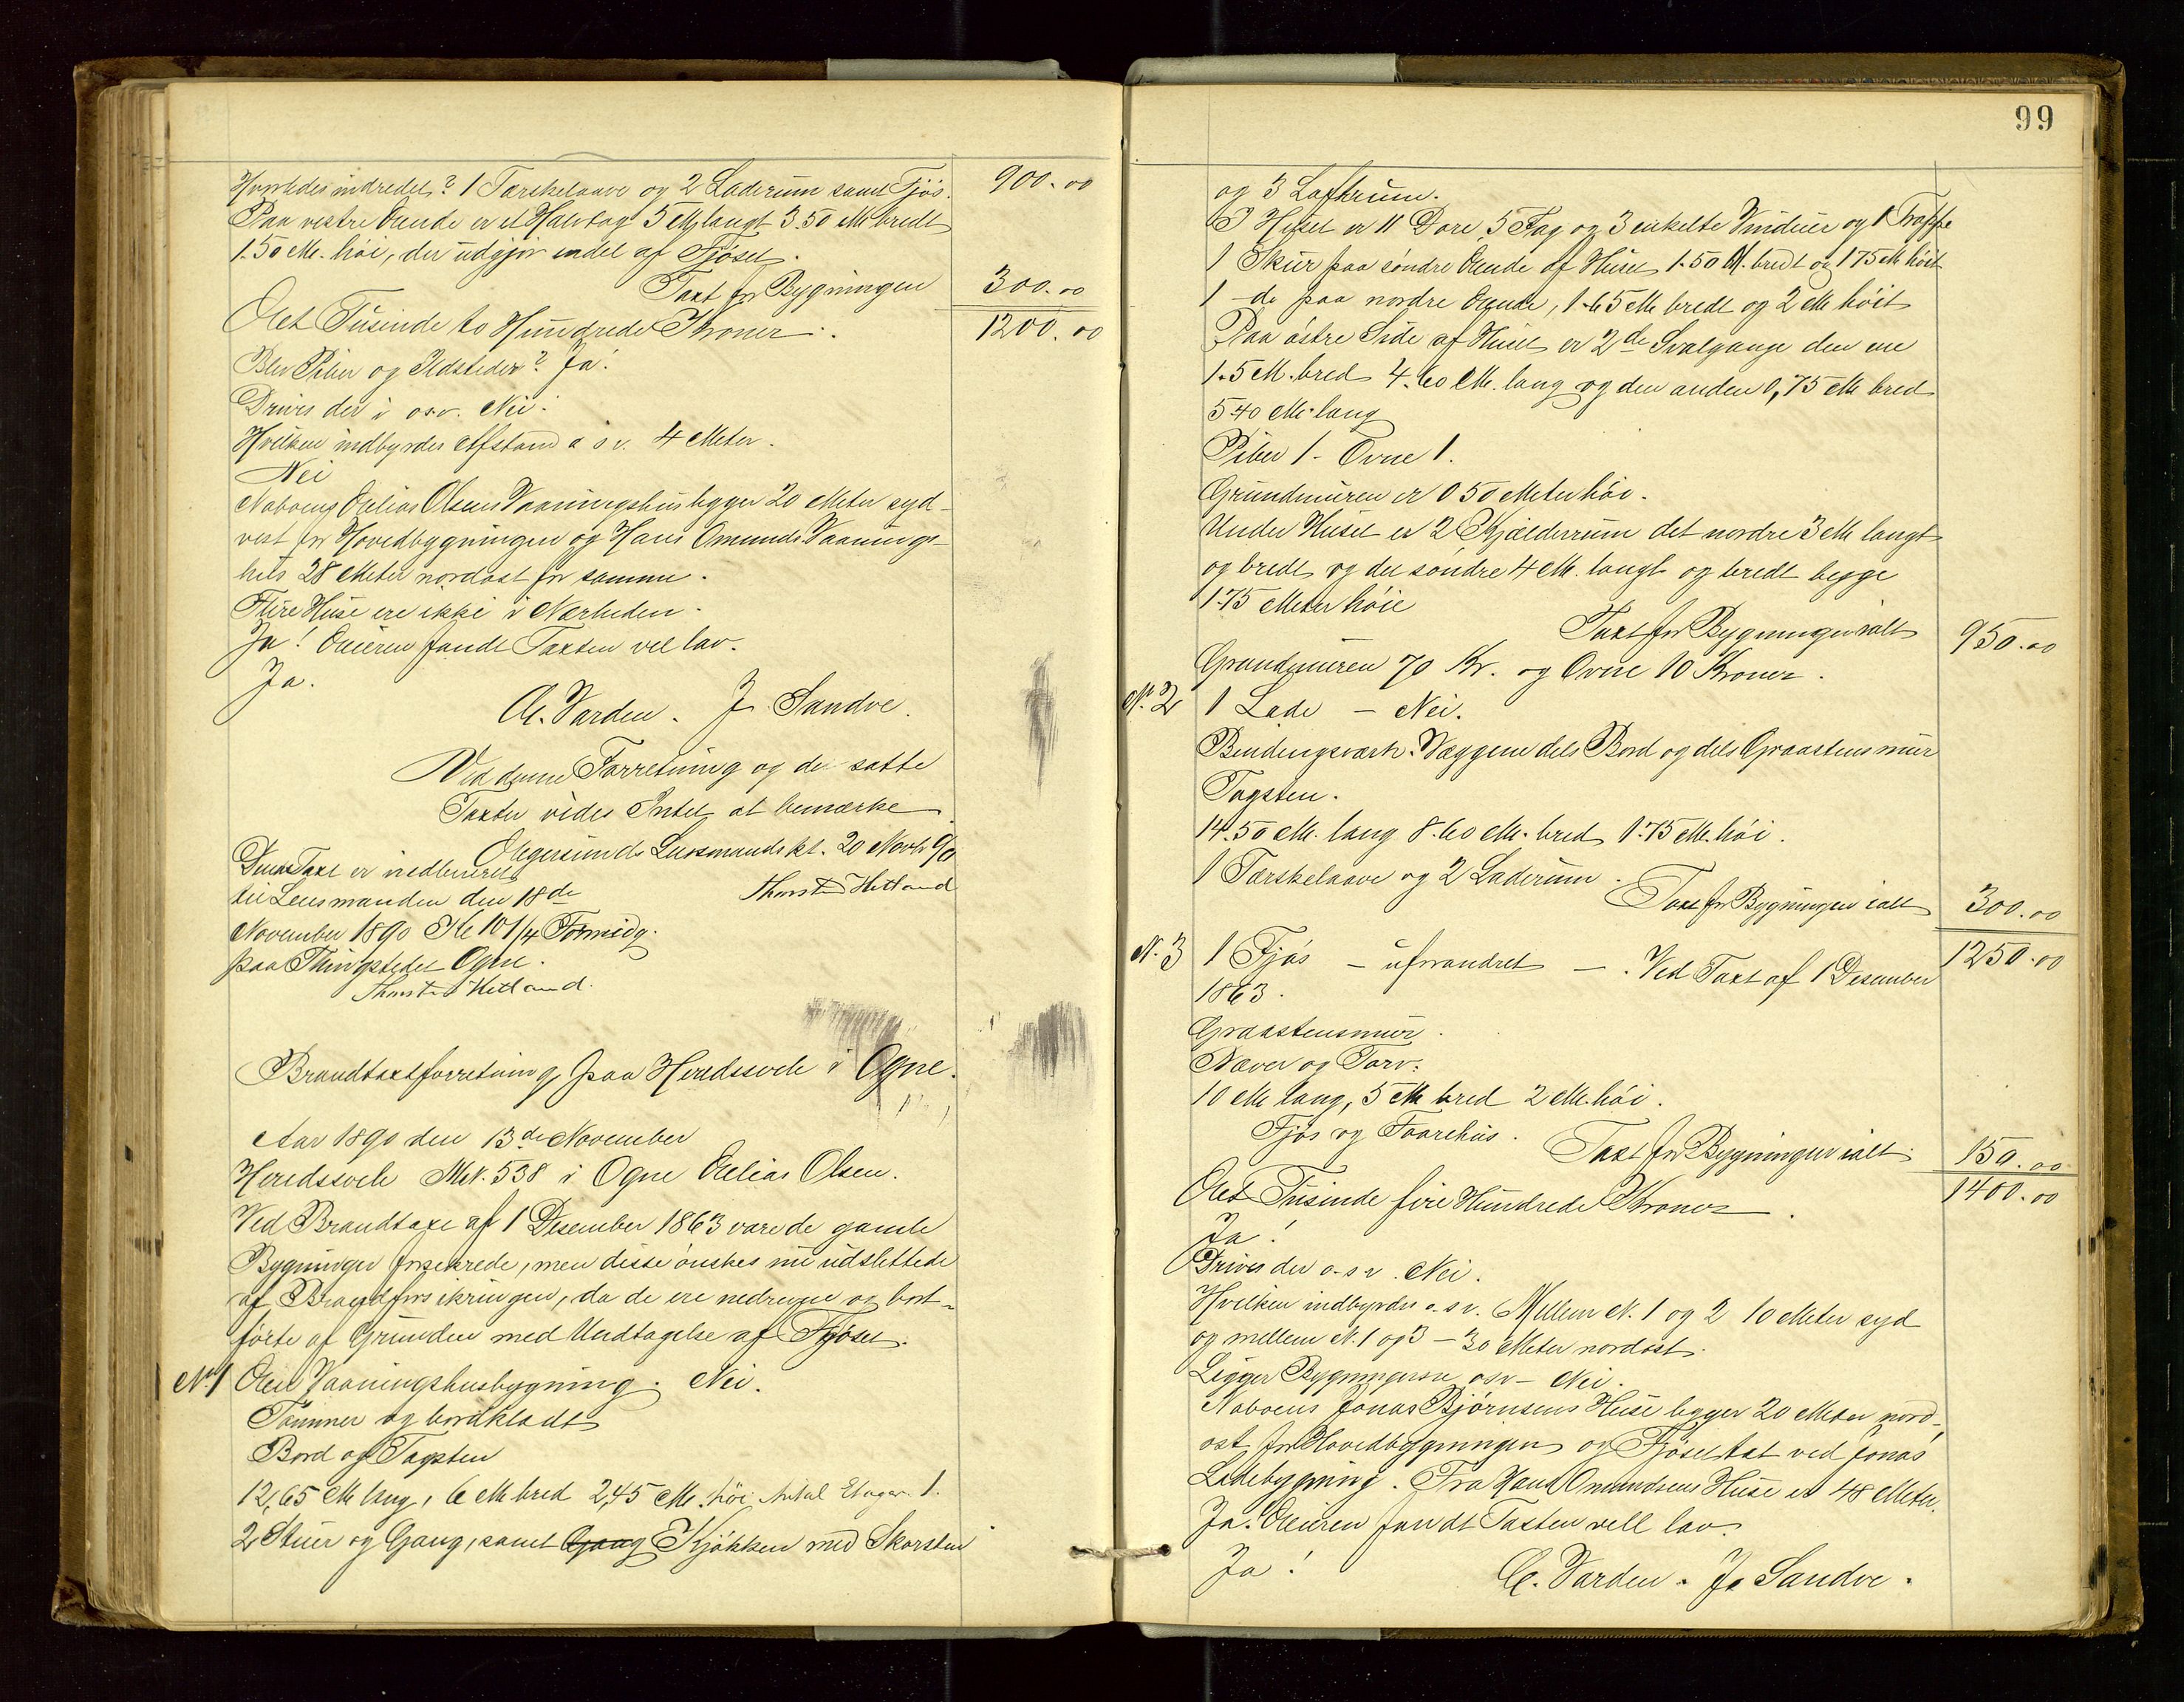 Hvorledes indredet? 1 Tærskelaave og 2 Laderum samt Fjøs. 900.00
Paa vestre Ende er et Halvtag 5 M langt 3.50 M bredt
1.50 M. høi, der udgjør endel af Fjøset.
Taxt for Bygningen 300.00
Et Tusinde to Hundrede Kroner. 1200.00
Blev Piber og Ildsteder? Ja!
Drives der i o.s.v. Nei.
Hvilken indbyrdes Afstand o s v. 4 Meter.
Nei
Naboens Elias Olsens Vaaningshus ligger 20 Meter syd-
vest for Hovedbygningen og Hans Omunds. Vaanings-
hus 28 Meter nordost for samme.
Flere Huse ere ikke i Nærheden.
Ja! Eieren fandt Taxten vel lav.
Ja.
E. Varden. J. Sandve.
Ved denne Forretning og de satte
Taxter vides Intet at bemærke
Egersunds Lensmandskt. 20 Novb. 90
Thorsten Hetland
Denne Taxt er indleveret
til Lensmanden den 18de
November 1890 Kl 10 1/4 Formidg.
paa Thingstedet Ogne.
Thorsten Hetland.
Brandtaxtforretning paa Heredsvele i Ogne.
Aar 1890 den 13de November
Heredsvele Mk. 538 i Ogne Elias Olsen.
Ved Brandtaxt af 1 Desember 1863 vare de gamle
Bygninger forsikrede, men disse ønskes nu udslettede
af Brandforsikringen, da de ere nedrevne og bort-
førte af Grunden med Undtagelse af Fjøset.
No 1 Een Vaaningshusbygning. Nei.
Tømmer og bordklædt
Bord og Tagsten
12,65 M lang, 6 M bred 2,45 M. høi, Antal Etager 1.
2 Stuer og Gang, samt Gang Kjøkken med Skorsten
99
og 3 Loftrum.
I Huset er 11 Døre, 5 Fag og 3 enkelte Vinduer og 1 Trappe
1 Skur paa søndre Ende af Huset 1.50 M. bredt og 1 75 M høit
1 - do paa nordre Ende, 1.65 M bredt og 2 M høit
Paa østre Side af Huset er 2de Svalgange den ene
1.5 M. bred 4.60 M. lang og den anden 0,75 M bred
5.40 M. lang
Piber 1 - Ovne 1.
Grundmuren er 0 50 Meter høi.
Under Huset er 2 Kjælderrum det nordre 3 M langt
og bredt, og det søndre 4 M. langt og bredt begge
1.75 Meter høie
Taxt for Bygningen ialt 950.00
Grundmuren 70 Kr. og Ovne 10 Kroner.
No 2 1 Lade - Nei.
Bindingsværk. Væggene dels Bord og dels Graastensmur
Tagsten.
14.50 M. lang 8.60 M. bred 1.75 M. høi.
1 Tærskelaave og 2 Laderum.
Taxt for Bygningen ialt 300.00
N. 3 1 Fjøs - uforandret - . Ved Taxt af 1 Desember 1250.00
1863.
Graastensmur.
Næver og Torv.
10 M lang, 5 M bred 2 M. høi.
Fjøs og Faarehus.
Taxt for Bygningen ialt 150.00
Et Tusinde fire Hundrede Kroner. 1400.00
Ja!
Drives der o.s v. Nei.
Hvilken indbyrdes o.s v. Mellem N. 1 og 2 10 Meter syd
og mellem N. 1 og 3 - 30 Meter nordost.
Ligger Bygningerne osv - Nei.
Naboens Jonas Bjørnsens Huse ligger 20 Meter nord-
ost for Hovedbygningen og Fjøset tæt ved Jonas
Ladebygning. Fra Hans Omundsens Huse er 48 Meter.
Ja. Eieren fandt Taxten vell lav.
Ja!
E. Varden. J. Sandve.